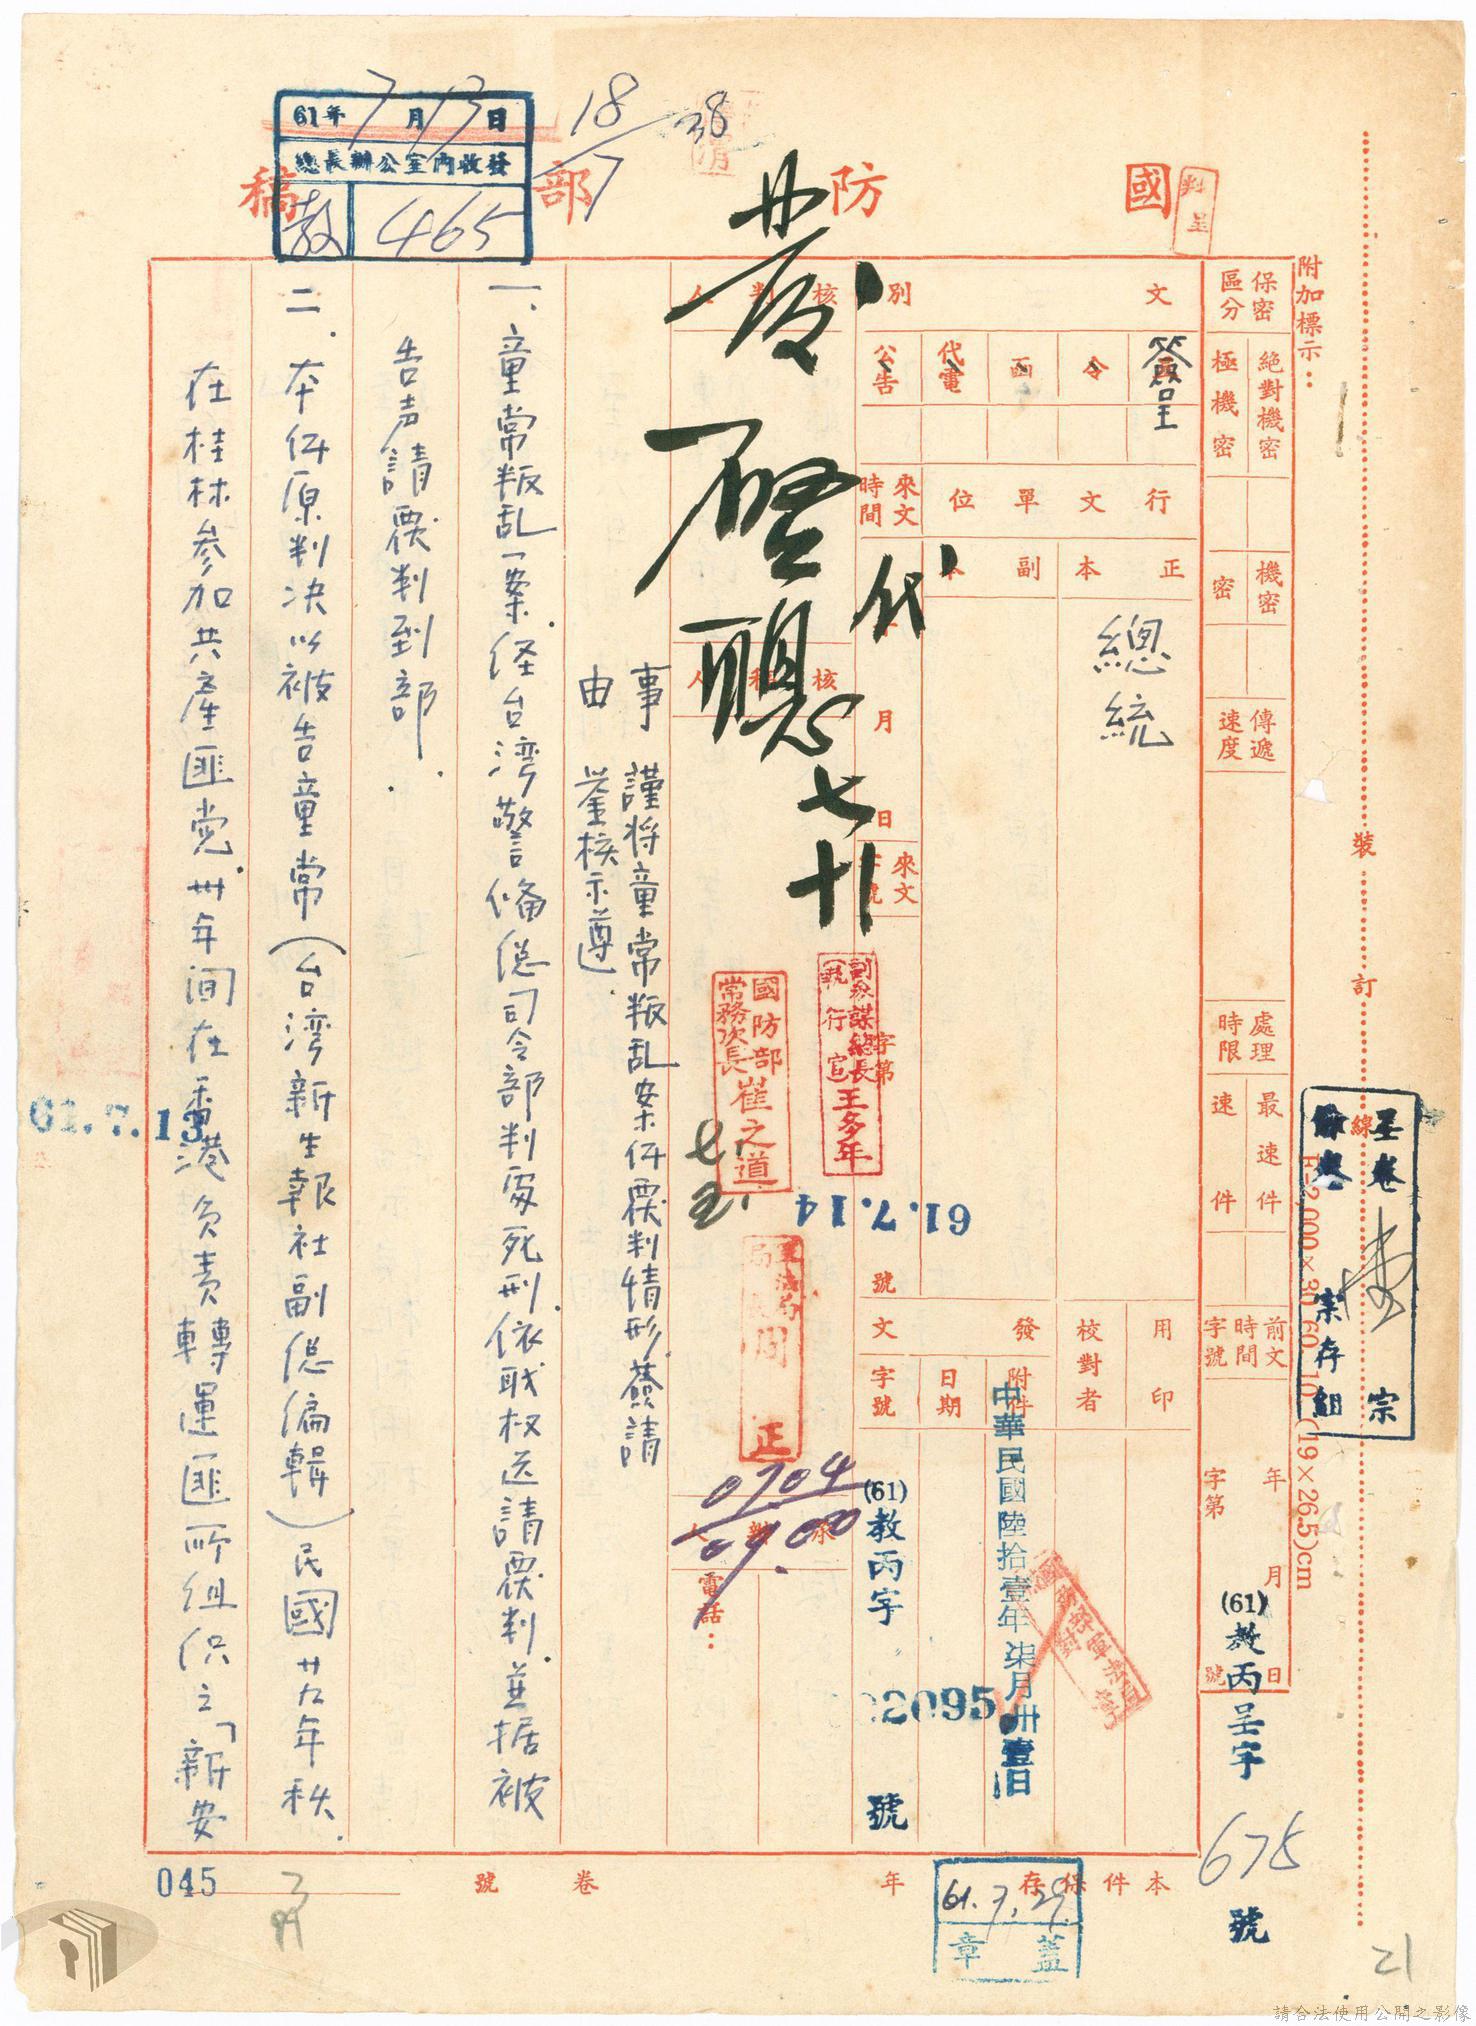 國防部稿
61年7月13日
總長辦公室內收發
教 465
18/7
38
附加標示：
保密區分
絕對機密
極機密
機密
密
傳遞速度
處理時限
最速件
速件
前文時間字號
年 月 日
字第 號
(61)教丙呈字
675
號
文別
簽呈
令
函
代電
公告
行文單位
來文時間
正本
副本
總統
月
日
來文
字第
號
用印
校對者
發文
附件
日期
字號
中華民國陸拾壹年柒月卅壹日
(61)教丙字
2095
號
核判人
代
七
十
副參謀總長
執行官
王多年
國防部
常務次長
崔之道
61.7.14
周
正
核稿人
0704
0900
承辦人
電話：
事由
謹將童常叛乱案件覆判情形簽請
鉴核示遵
一、童常叛乱一案経台湾警俻總司令部判處死刑依职权送請覆判並据被
告声請覆判到部．
二．本件原判决以被告童常（台湾新生報社副總编輯）民國廿九年秋．
在桂林参加共產匪党．卅年间在香港负责轉運匪所组织之「新安
61.7.13
裝
訂
線
宗存組
卷宗
F-2,000×30 60. 10 (19×26.5)cm
本件保存 年
61.7.29
蓋章
卷
號
045
21
請合法使用公開之影像